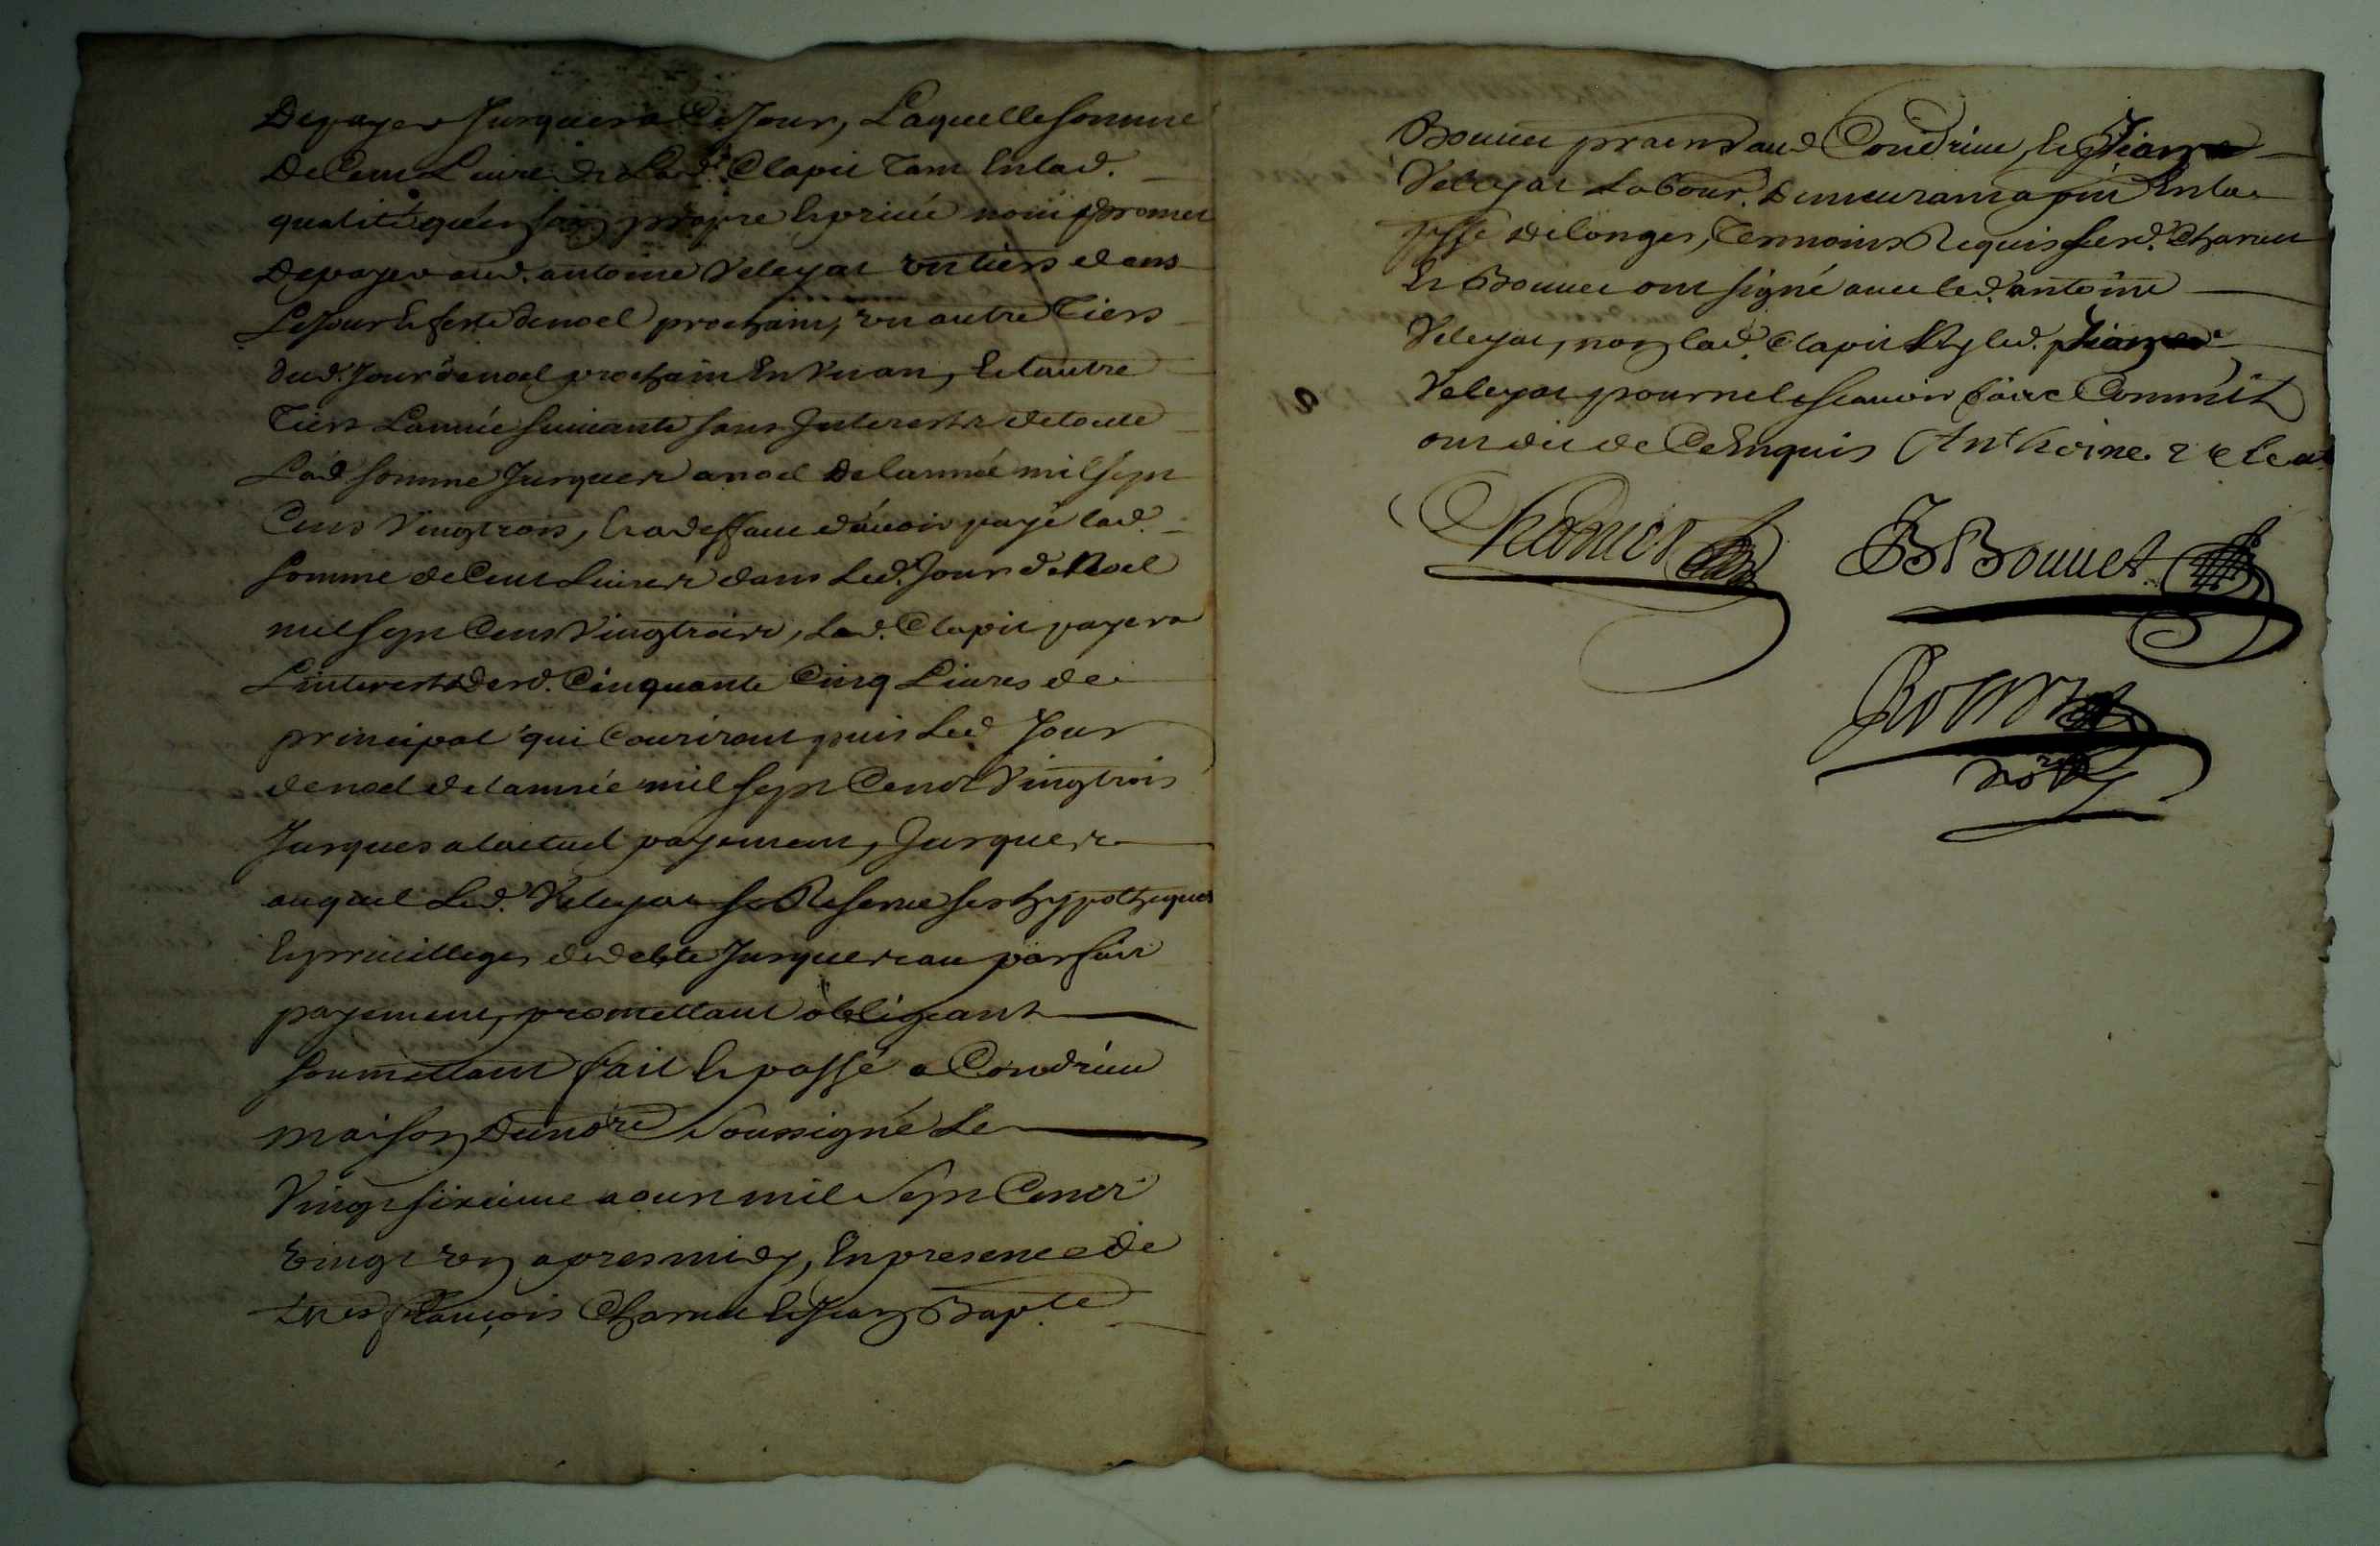 Depayer Jusques a Ce Jour, Laquelle somme
De Cent Livres de Lad. Clapit Tant Enlad.
qualité qu'en son propre Et privé nom promet
Depayer aud. antoine Veleyat un tiers dans
Le Jour Et feste de noel prochain, un autre Tiers
dud. Jour de noel prochain En Un an, Et l'autre
Tiers L'année suivante sans Interests de toute
Lad somme Jusques a noel De l'année mil sept
Cens Vingtrois, Et a deffaut d'avoir payé lad.
somme de Cent Livres dans Led. Jour de Noel
mil sept Cens Vingtrois, Lad. Clapit payera
L'interests Desd. Cinquante Cinq Livres de
principal qui Couriront puis Led Jour
de noel de l'année mil sept Cents Vingtrois
Jusques a l'actuel payement, Jusques
auquel Led. Veleyat se Reserve ses hypotheques
Et privilleges de debte Jusques au parfait
payement, promettant obligeant
soumettant fait Et passé a Condrieu
maison du nore soussigné Le
Vingt sixieme aoust mil sept Cents
vingt un apres midy, En presence de
François Charvet Et Jean Bapte
Bouvet praens aud Condrieu, Et Pierre
Veleyat Labour. Demeurant a pin En la
psse de longes, Temoins Requis Lesd. Charvet
Et Bouvet ont signé avec led. antoine
Veleyat, non lad. Clapit Ny led. pierre
Veleyat pour ne le scavoir faire Comm'il
ont dit de Ce Enquis Anthoine veleat
Charvet
JB Bouvet
nore